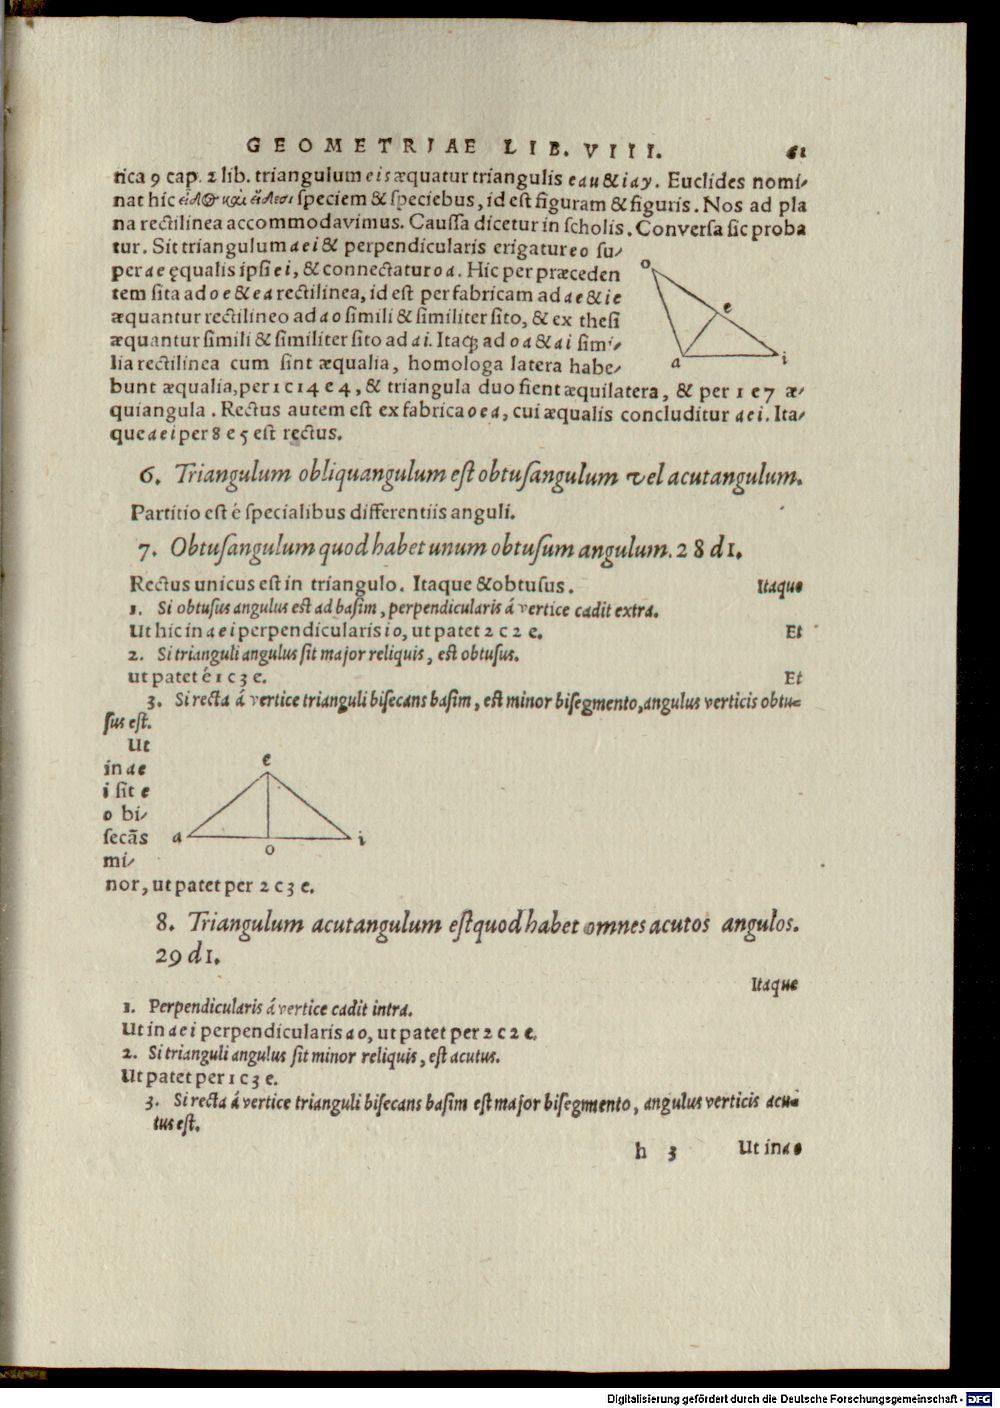 GEOMETRIAE LIB. VIII. 61
tica 9 cap. 2 lib. triangulum e i s æquatur triangulis e a u & i a y. Euclides nomi-
nat hic εἶδος καὶ εἴδεσι speciem & speciebus, id est figuram & figuris. Nos ad pla
na rectilinea accommodavimus. Caussa dicetur in scholis. Conversa sic proba
tur. Sit triangulum a e i & perpendicularis erigatur e o su-
per a e ęqualis ipsi e i, & connectatur o a. Hic per præceden
tem sita ad o e & e a rectilinea, id est per fabricam ad a e & i e
æquantur rectilineo ad a o simili & similiter sito, & ex thesi
æquantur simili & similiter sito ad a i. Itaq; ad o a & a i simi-
lia rectilinea cum sint æqualia, homologa latera habe-
bunt æqualia, per 1 c 14 e 4, & triangula duo fient æquilatera, & per 1 e 7 æ-
quiangula. Rectus autem est ex fabrica o e a, cui æqualis concluditur a e i. Ita-
que a e i per 8 e 5 est rectus.
o
e
a
i
6. Triangulum obliquangulum est obtusangulum vel acutangulum.
Partitio est é specialibus differentiis anguli.
7. Obtusangulum quod habet unum obtusum angulum. 28 d 1.
Rectus unicus est in triangulo. Itaque & obtusus. Itaque
1. Si obtusus angulus est ad basim, perpendicularis á vertice cadit extra.
Ut hic in a e i perpendicularis i o, ut patet 2 c 2 e. Et
2. Si trianguli angulus sit major reliquis, est obtusus.
ut patet é 1 c 3 e. Et
3. Si recta á vertice trianguli bisecans basim, est minor bisegmento, angulus verticis obtu-
sus est.
Ut
in a e
i sit e
o bi-
secãs
mi-
nor, ut patet per 2 c 3 e.
e
a
o
i
8. Triangulum acutangulum est quod habet omnes acutos angulos.
29 d 1.
Itaque
1. Perpendicularis á vertice cadit intra.
Ut in a e i perpendicularis a o, ut patet per 2 c 2 e.
2. Si trianguli angulus sit minor reliquis, est acutus.
Ut patet per 1 c 3 e.
3. Si recta á vertice trianguli bisecans basim est major bisegmento, angulus verticis acu-
tus est.
h 3 Ut in a e
Digitalisierung gefördert durch die Deutsche Forschungsgemeinschaft - DFG